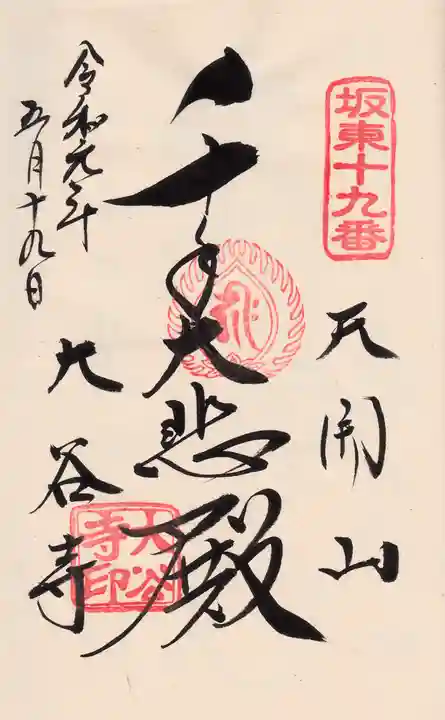 坂東十九番
天開山
千手大悲殿
大谷寺印
令和元年
五月十九日
大谷寺